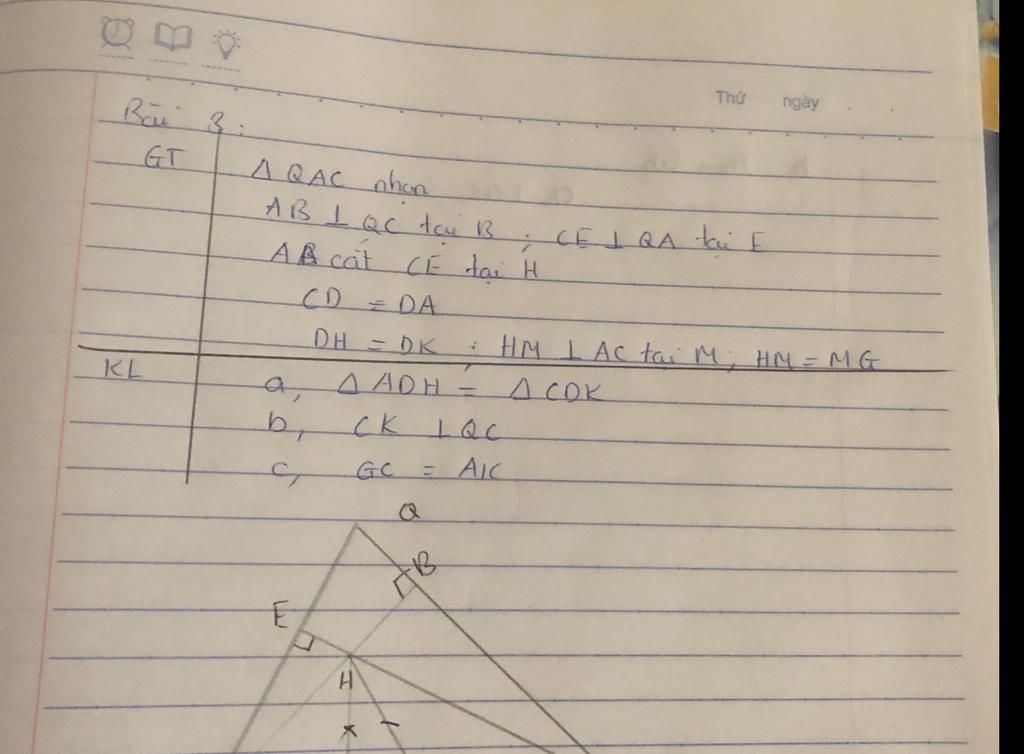 Thứ ngày
Bài 3:
GT
Δ QAC nhọn
AB ⊥ QC tại B ; CE ⊥ QA tại E
AB cắt CE tại H
CD = DA
DH = DK ; HM ⊥ AC tại M ; HM = MG
KL
a, Δ ADH = Δ CDK
b, CK ⊥ QC
c, GC = AK
Q
B
E
H